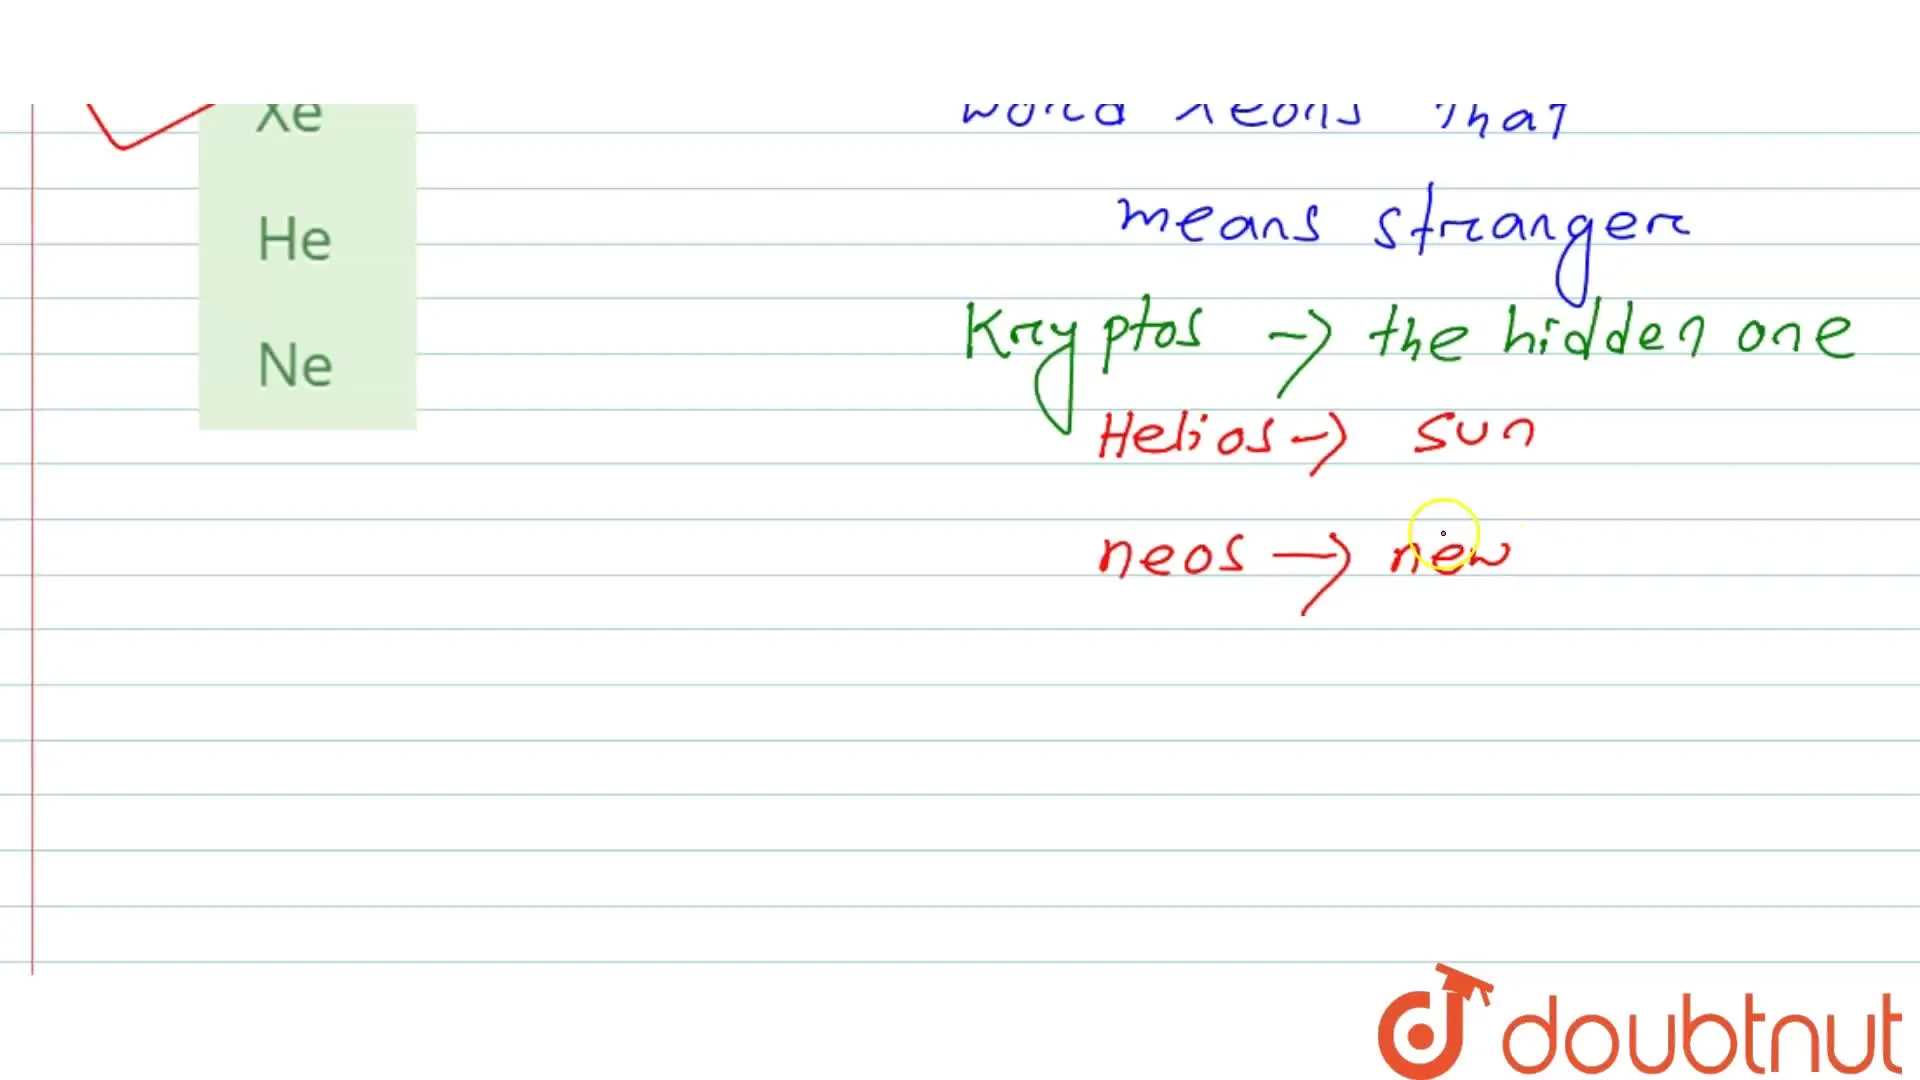 Xe
He
Ne
that
means stranger
Kryptos → the hidden one
Helios → sun
neos → new
doubtnut